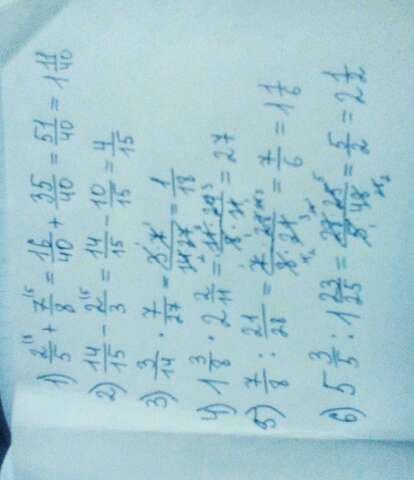 1) 2/5 + 7/8 = 16/40 + 35/40 = 51/40 = 1 11/40
2) 14/15 - 2/3 = 14/15 - 10/15 = 4/15
3) 3/14 · 7/27 = 3·7/14·27 = 1/18
4) 1 3/8 · 2 2/11 = = 27
5) 7/8 : 21/28 = 7·28/8·21 = 7/6 = 1 1/6
6) 5 3/5 : 1 23/25 = = 5/2 = 2 1/2